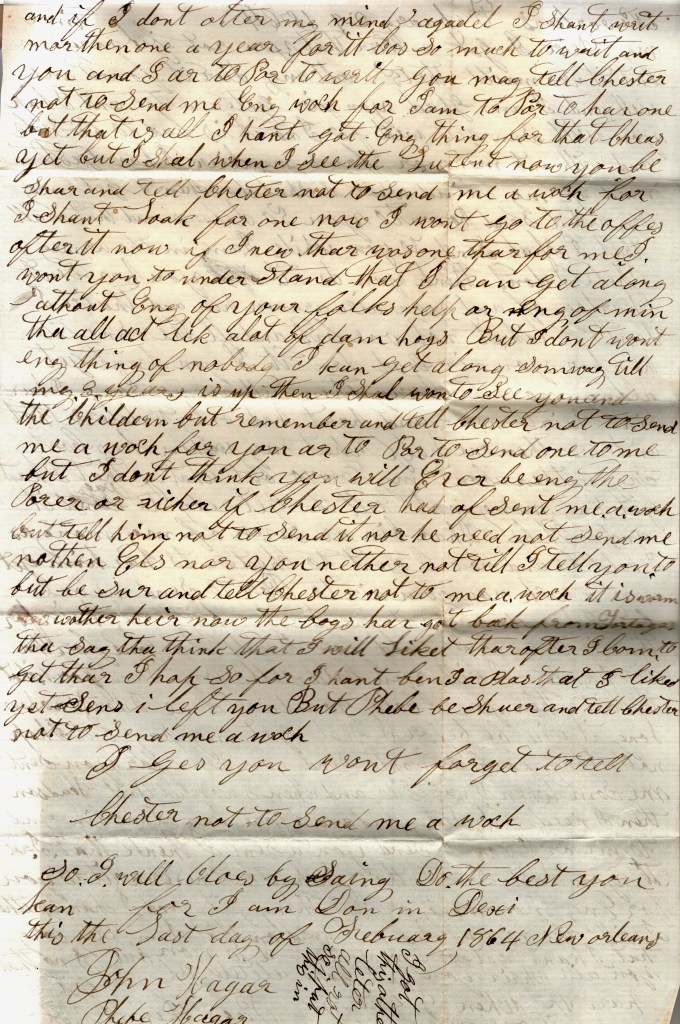 and if I dont olter my mind I shant writ
mor then one a year for it cos so much to wait and
you and I ar to Por to writ you may tell Chester
not to send me Eng woch for I am to Por to har one
but that is all I hant got Eng thing for that Cheas
yet but I shal when I see the Lutent now you be
shur and tell Chester not to send me a woch for
I shant Look for one now I wont go to the offes
after it now if I new thar was one thar for me I
wont you to under Stand that I kan Get along
athout Eng of your folks help or eng of min
tha all act lik alot of dam hogs But I dont wont
eng thing of nobody I kan Get along somway till
my 3 years is up then I Shal won to See you and
the Childern but remember and tell Chester not to send
me a woch for you ar to Por to send one to me
but I dont think you will Ever be eng the
Porer or richer if Chester had of sent me a woch
but tell him not to send it nor he need not send me
nothen Els nor you nether not till I tell you to
but be sur and tell Chester not to me a woch it is warm
wother heir now the boys har got back from
tha say tha think that I will Liket thar after I bom to
get thar I hop so for I hant ben I a Plas that I liked
yet Sens i left you But Phebe be Shuer and tell Chester
not to send me a woch
I Ges you wont forget to tell
Chester not to Send me a woch
So I will Cloes by Saing Do the best you
kan for I am Don in Dexi
this the Last day of Febuary 1864 New orleans
John Hagar
Phebe Hagar
I got
this
leter
all
so i put
this in